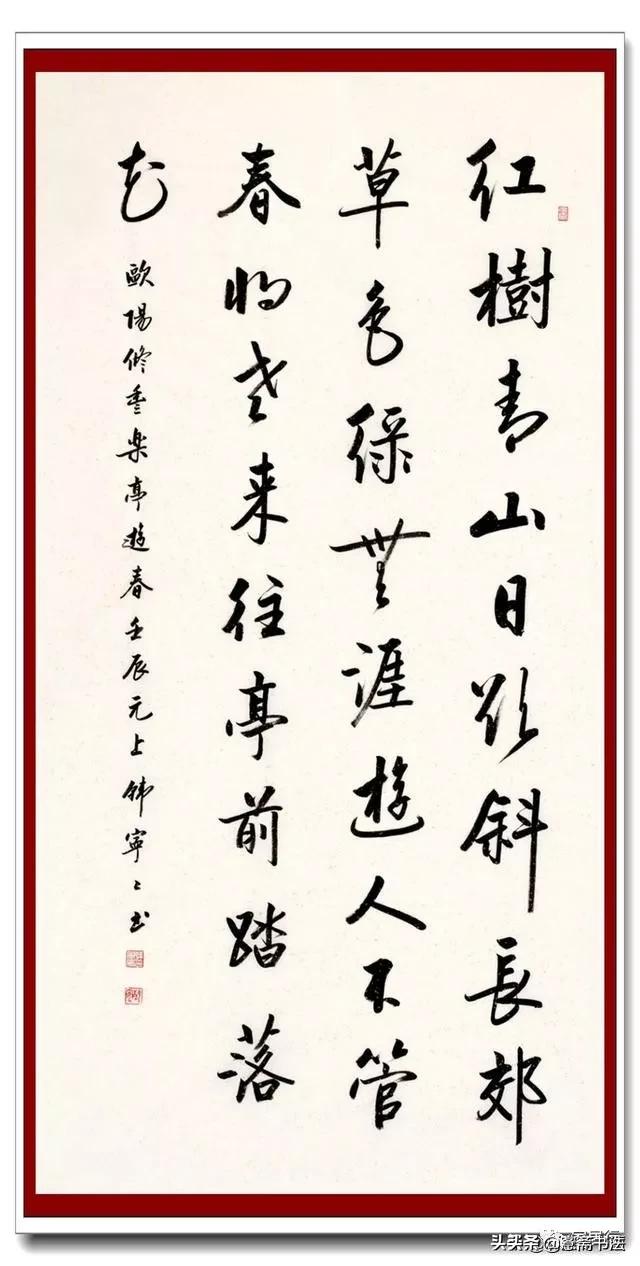 红樹青山日欲斜長郊
草色绿無涯遊人不管
春將老来往亭前踏落
花
歐陽修豐樂亭遊春壬辰元上韩寧々书
头条 @慧斋书法